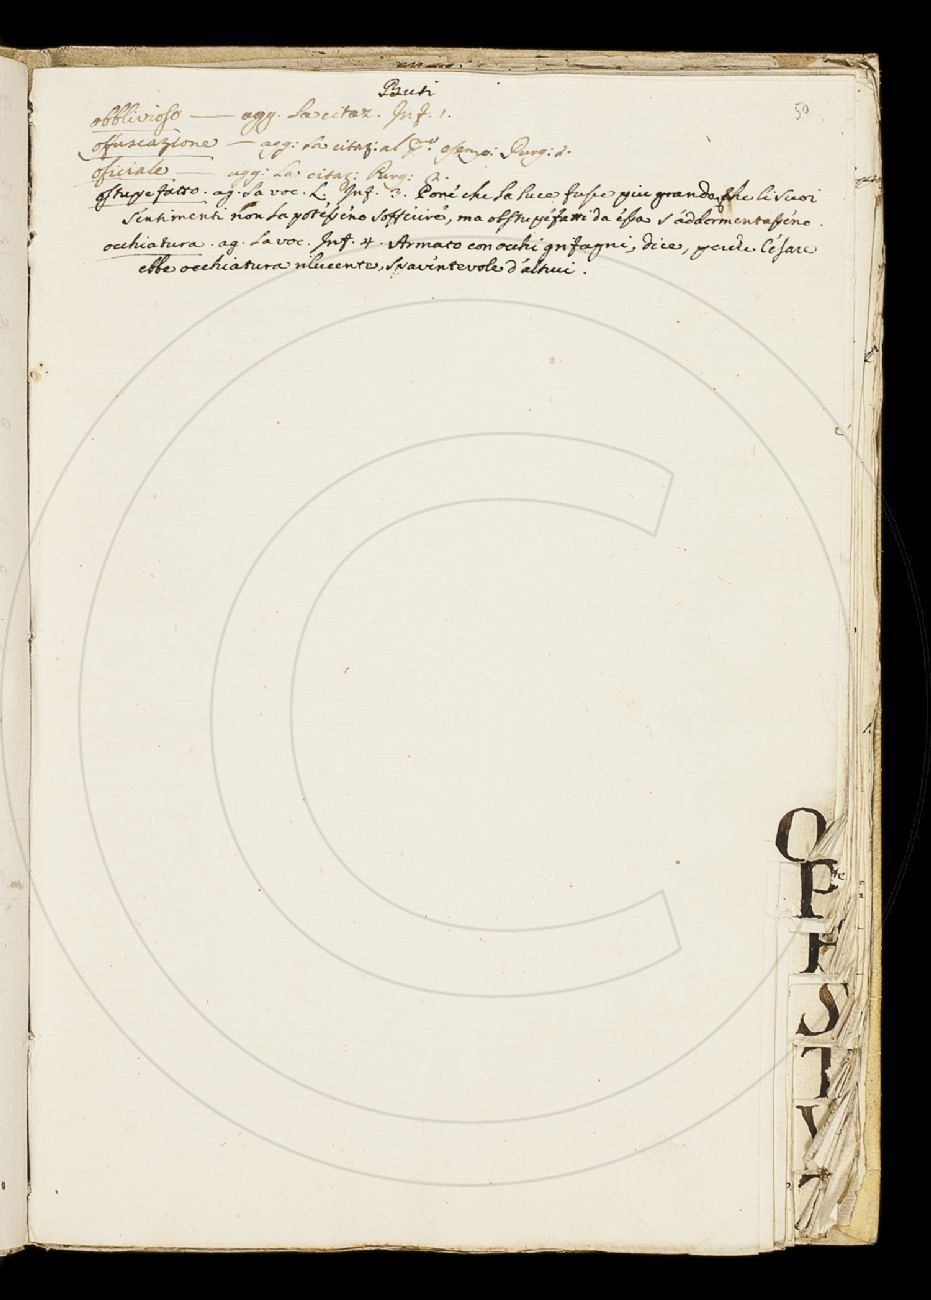 Buti
50
obblivioso — agg. la citaz. Inf. 1.
offuscazione — agg: la citaz: al pmo. esemp: Purg: 2.
oficiale — agg: la citaz: Purg: 2.
ostupefatto. ag. la voc. L. Inf. 3. Poné che la luce fusse piu grande che li suoi
sentimenti non la potesséno sofferire, ma obstupefatti da essa s'addormentasséno.
occhiatura. ag. la voc. Inf. 4. Armato con occhi grifagni, dice, perché Césare
ebbe occhiatura rilucente, spaventevole d'altrui.
O
P
R
S
T
V
Z